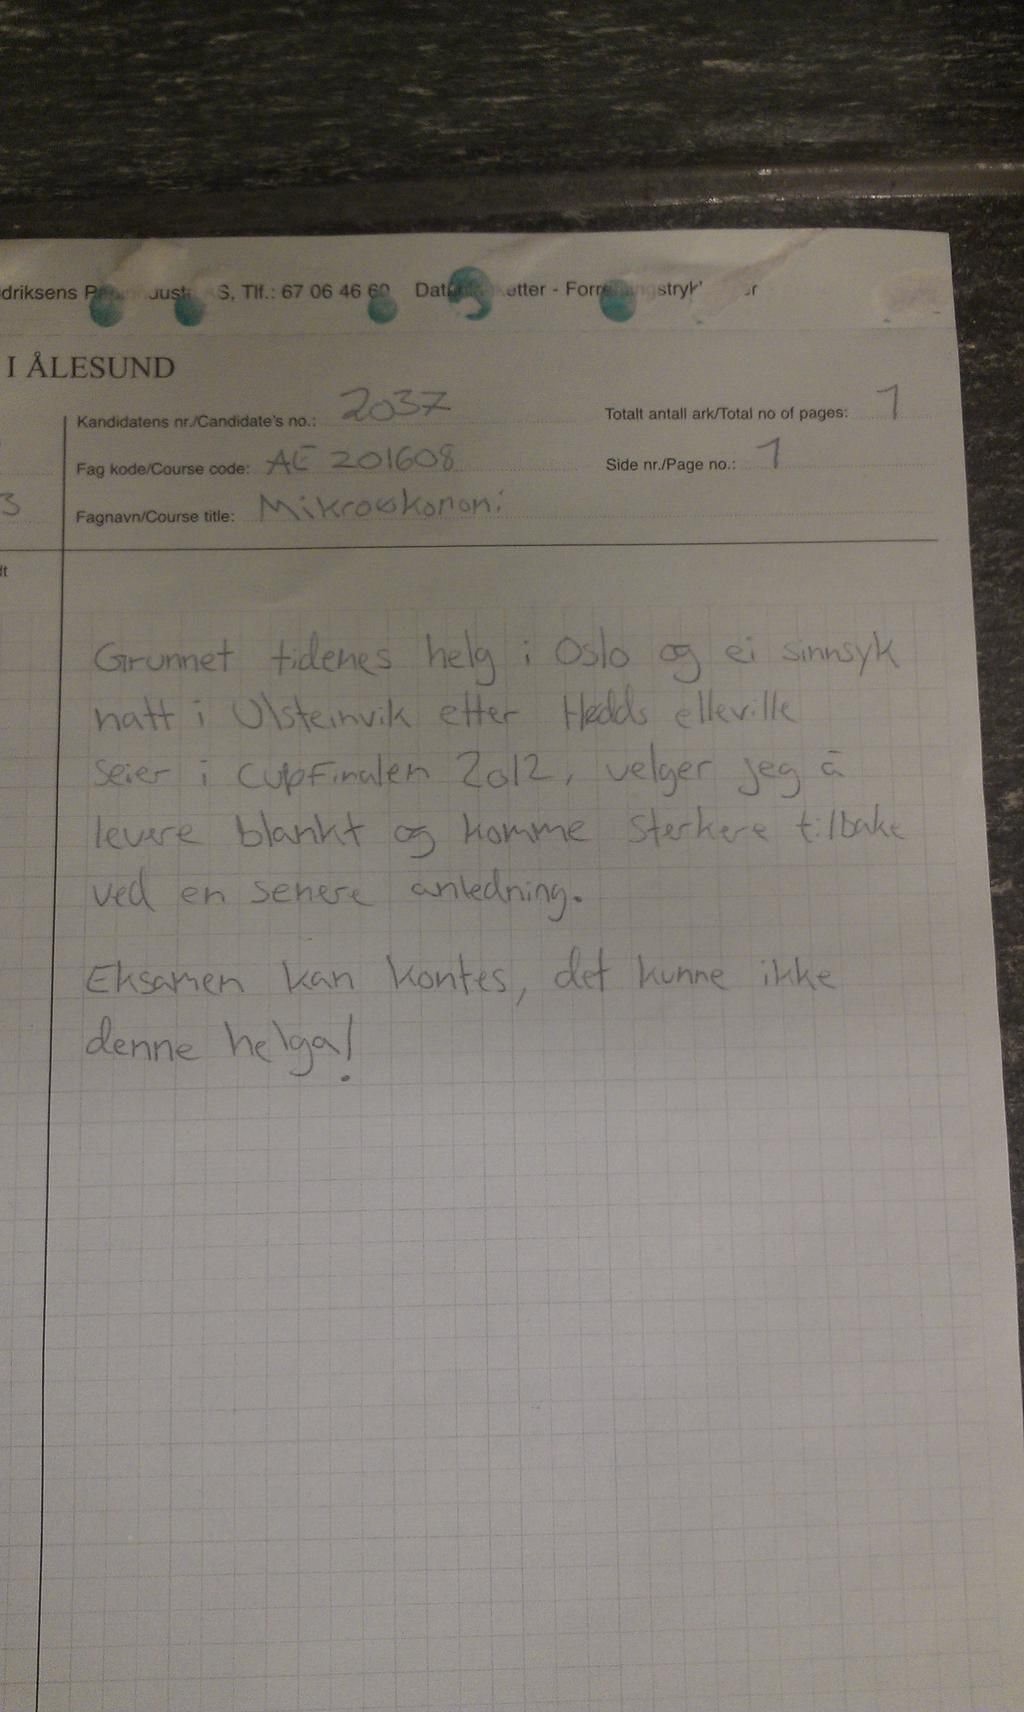 driksens S, Tlf.: 67 06 46 60
I ÅLESUND
Kandidatens nr./Candidate's no.: 2037
Totalt antall ark/Total no of pages: 1
Fag kode/Course code: AE 201608
Side nr./Page no.: 1
3
Fagnavn/Course title: Mikroøkonomi
ft
Grunnet tidenes helg i Oslo og ei sinnsyk
natt i Ulsteinvik etter Hødds elleville
seier i cupfinalen 2012, velger jeg å
levere blankt og komme sterkere tilbake
ved en senere anledning.
Eksamen kan kontes, det kunne ikke
denne helga!